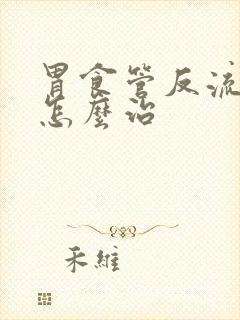 胃食管反流
怎麼治
禾維